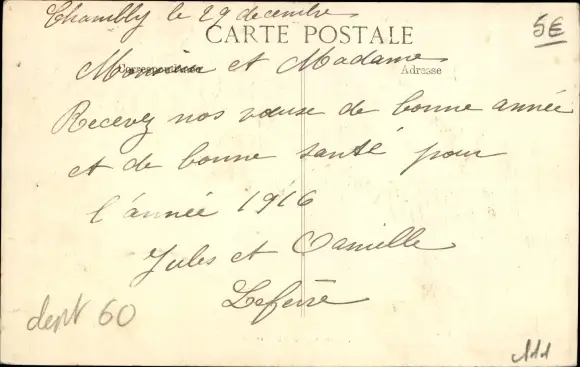 Chambly le 29 decembre
5€
CARTE POSTALE
Correspondance
Adresse
Monsieur et Madame
Recevez nos vœuse de bonne année
et de bonne santé pour
l'année 1916
Jules et Camille
Lefevre
dept 60
111